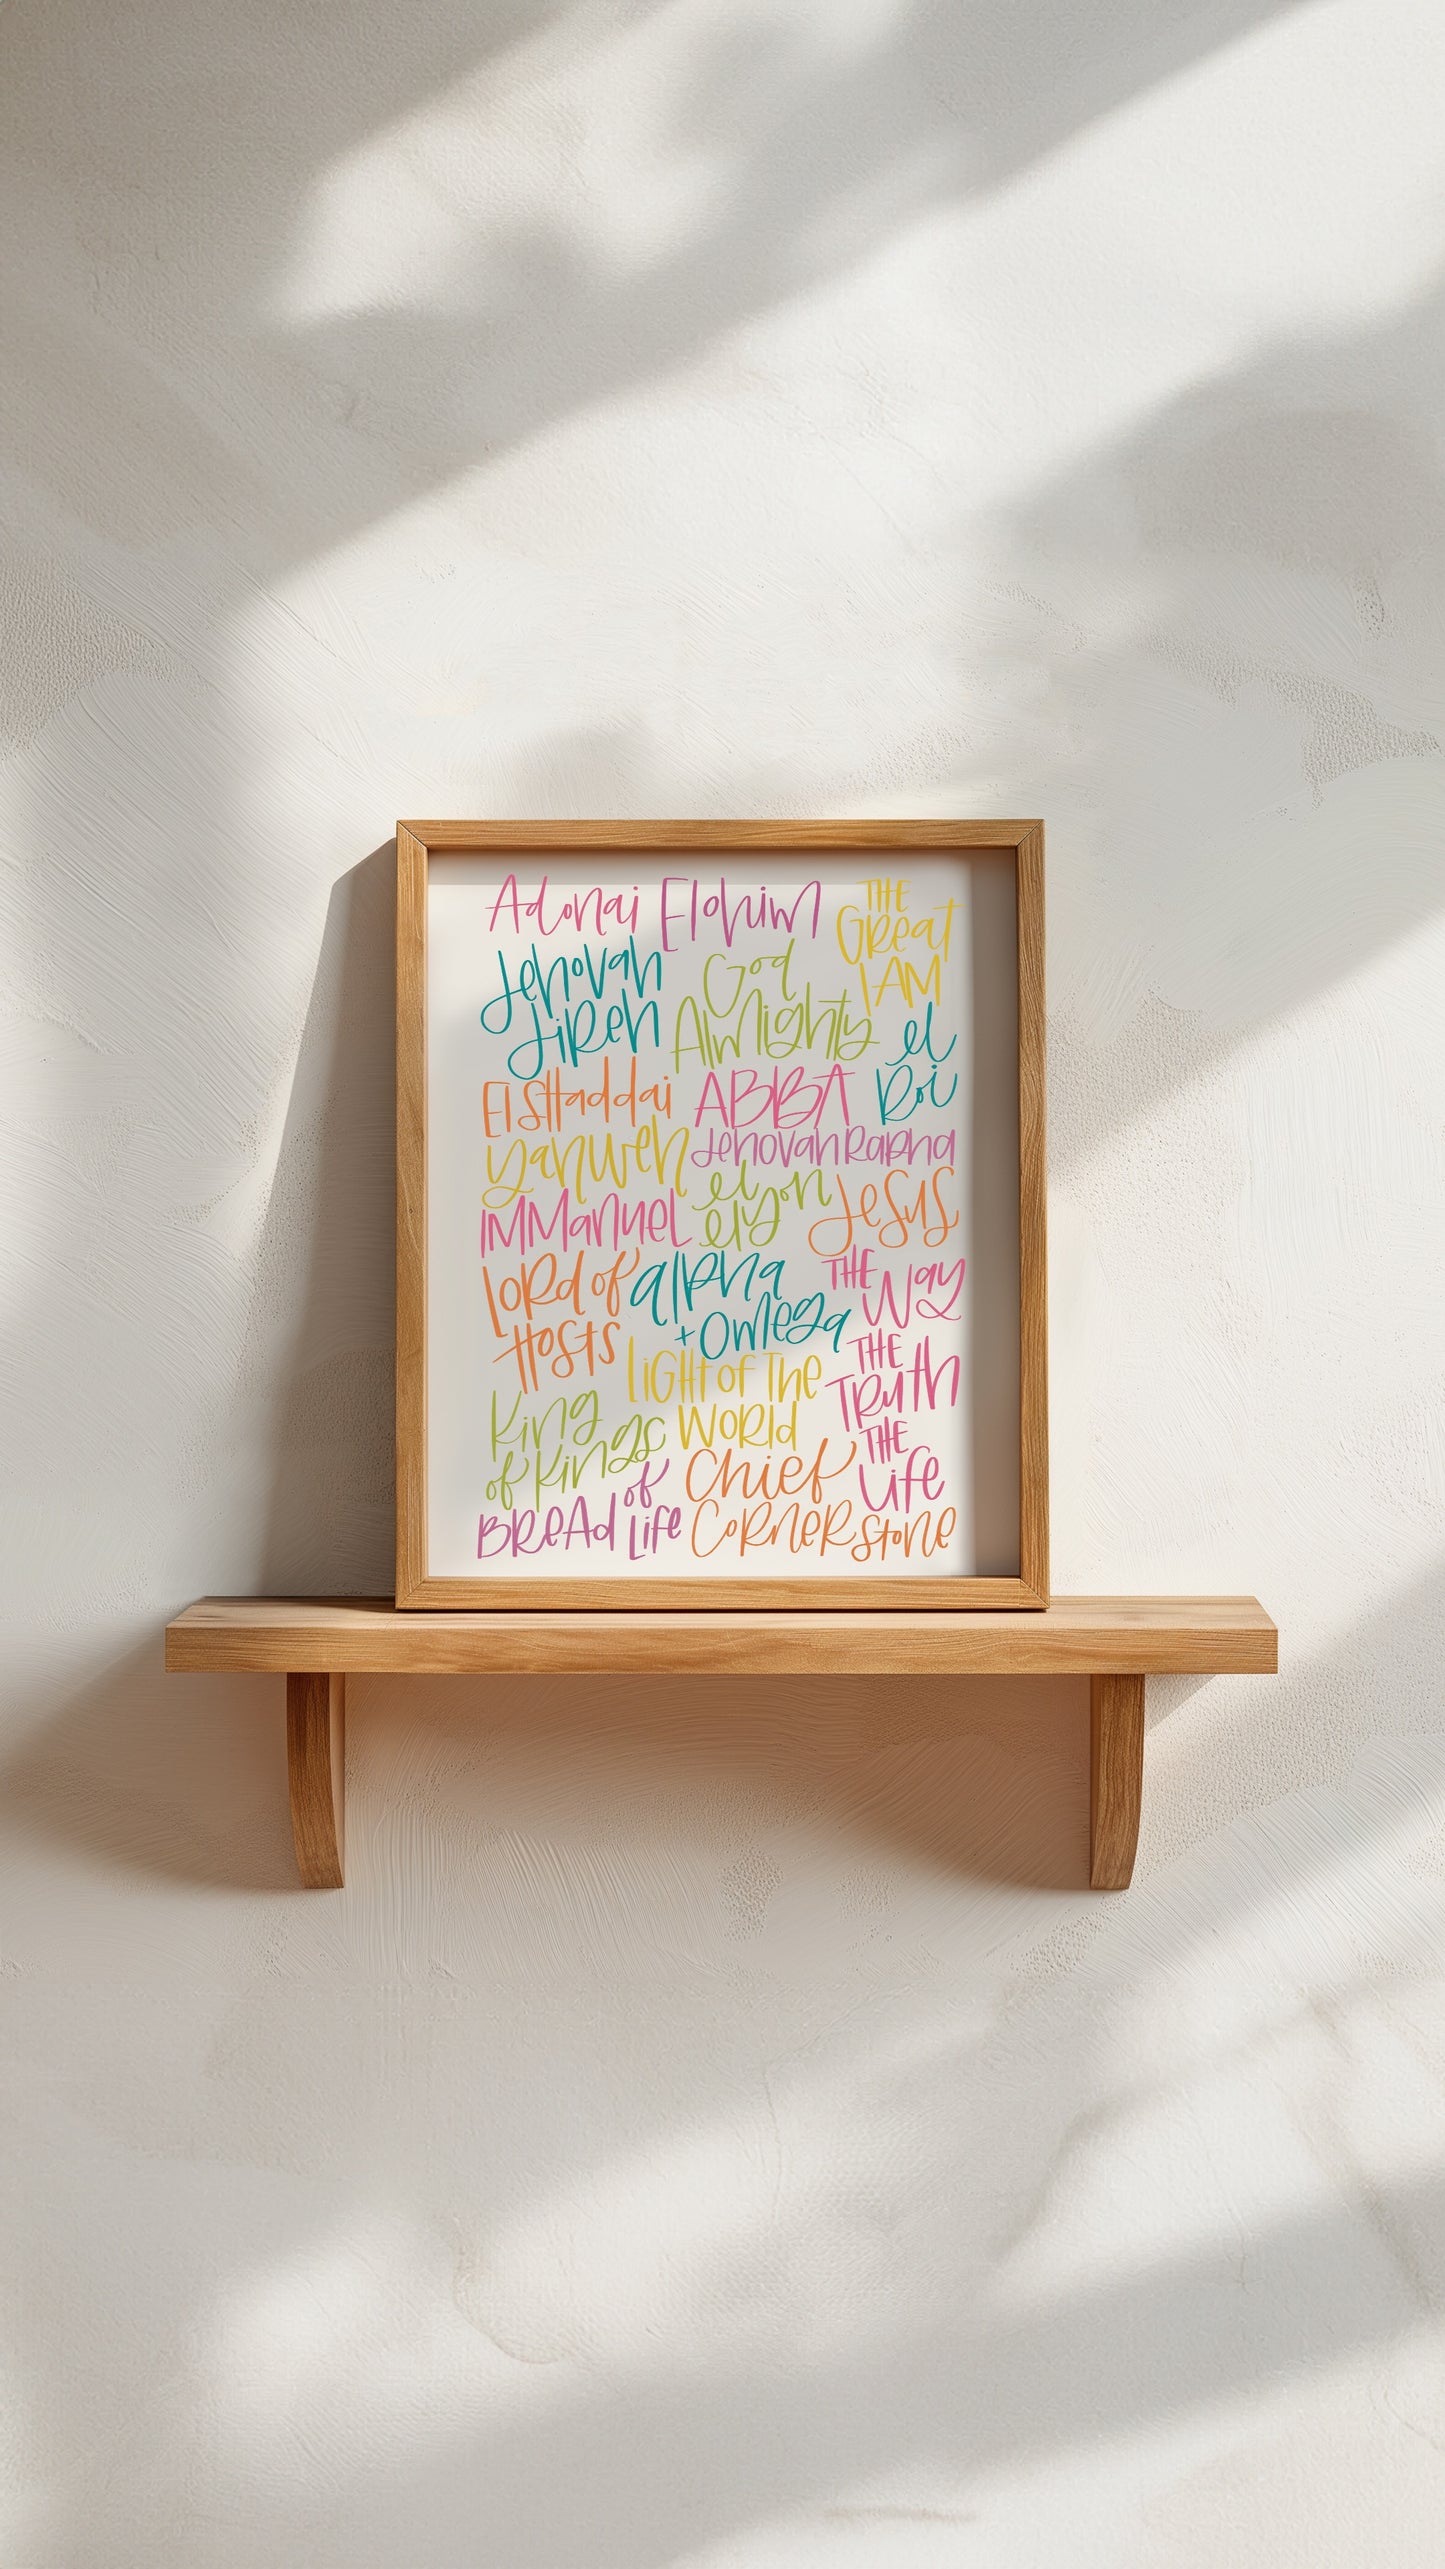 Adonai
Elohim
THE
GReaT
I AM
Jehovah
JiReh
God
AlMighty
el
Roi
El SHaddai
ABBA
yahweh
Jehovah Rapha
IMManuel
el
elyon
Jesus
LoRd of
Hosts
alpha
+ Omega
THE Way
THE
TRuth
THE
Life
LiGHt of The
WoRld
King
of Kings
BReAd of Life
Chief
CoRneRstone